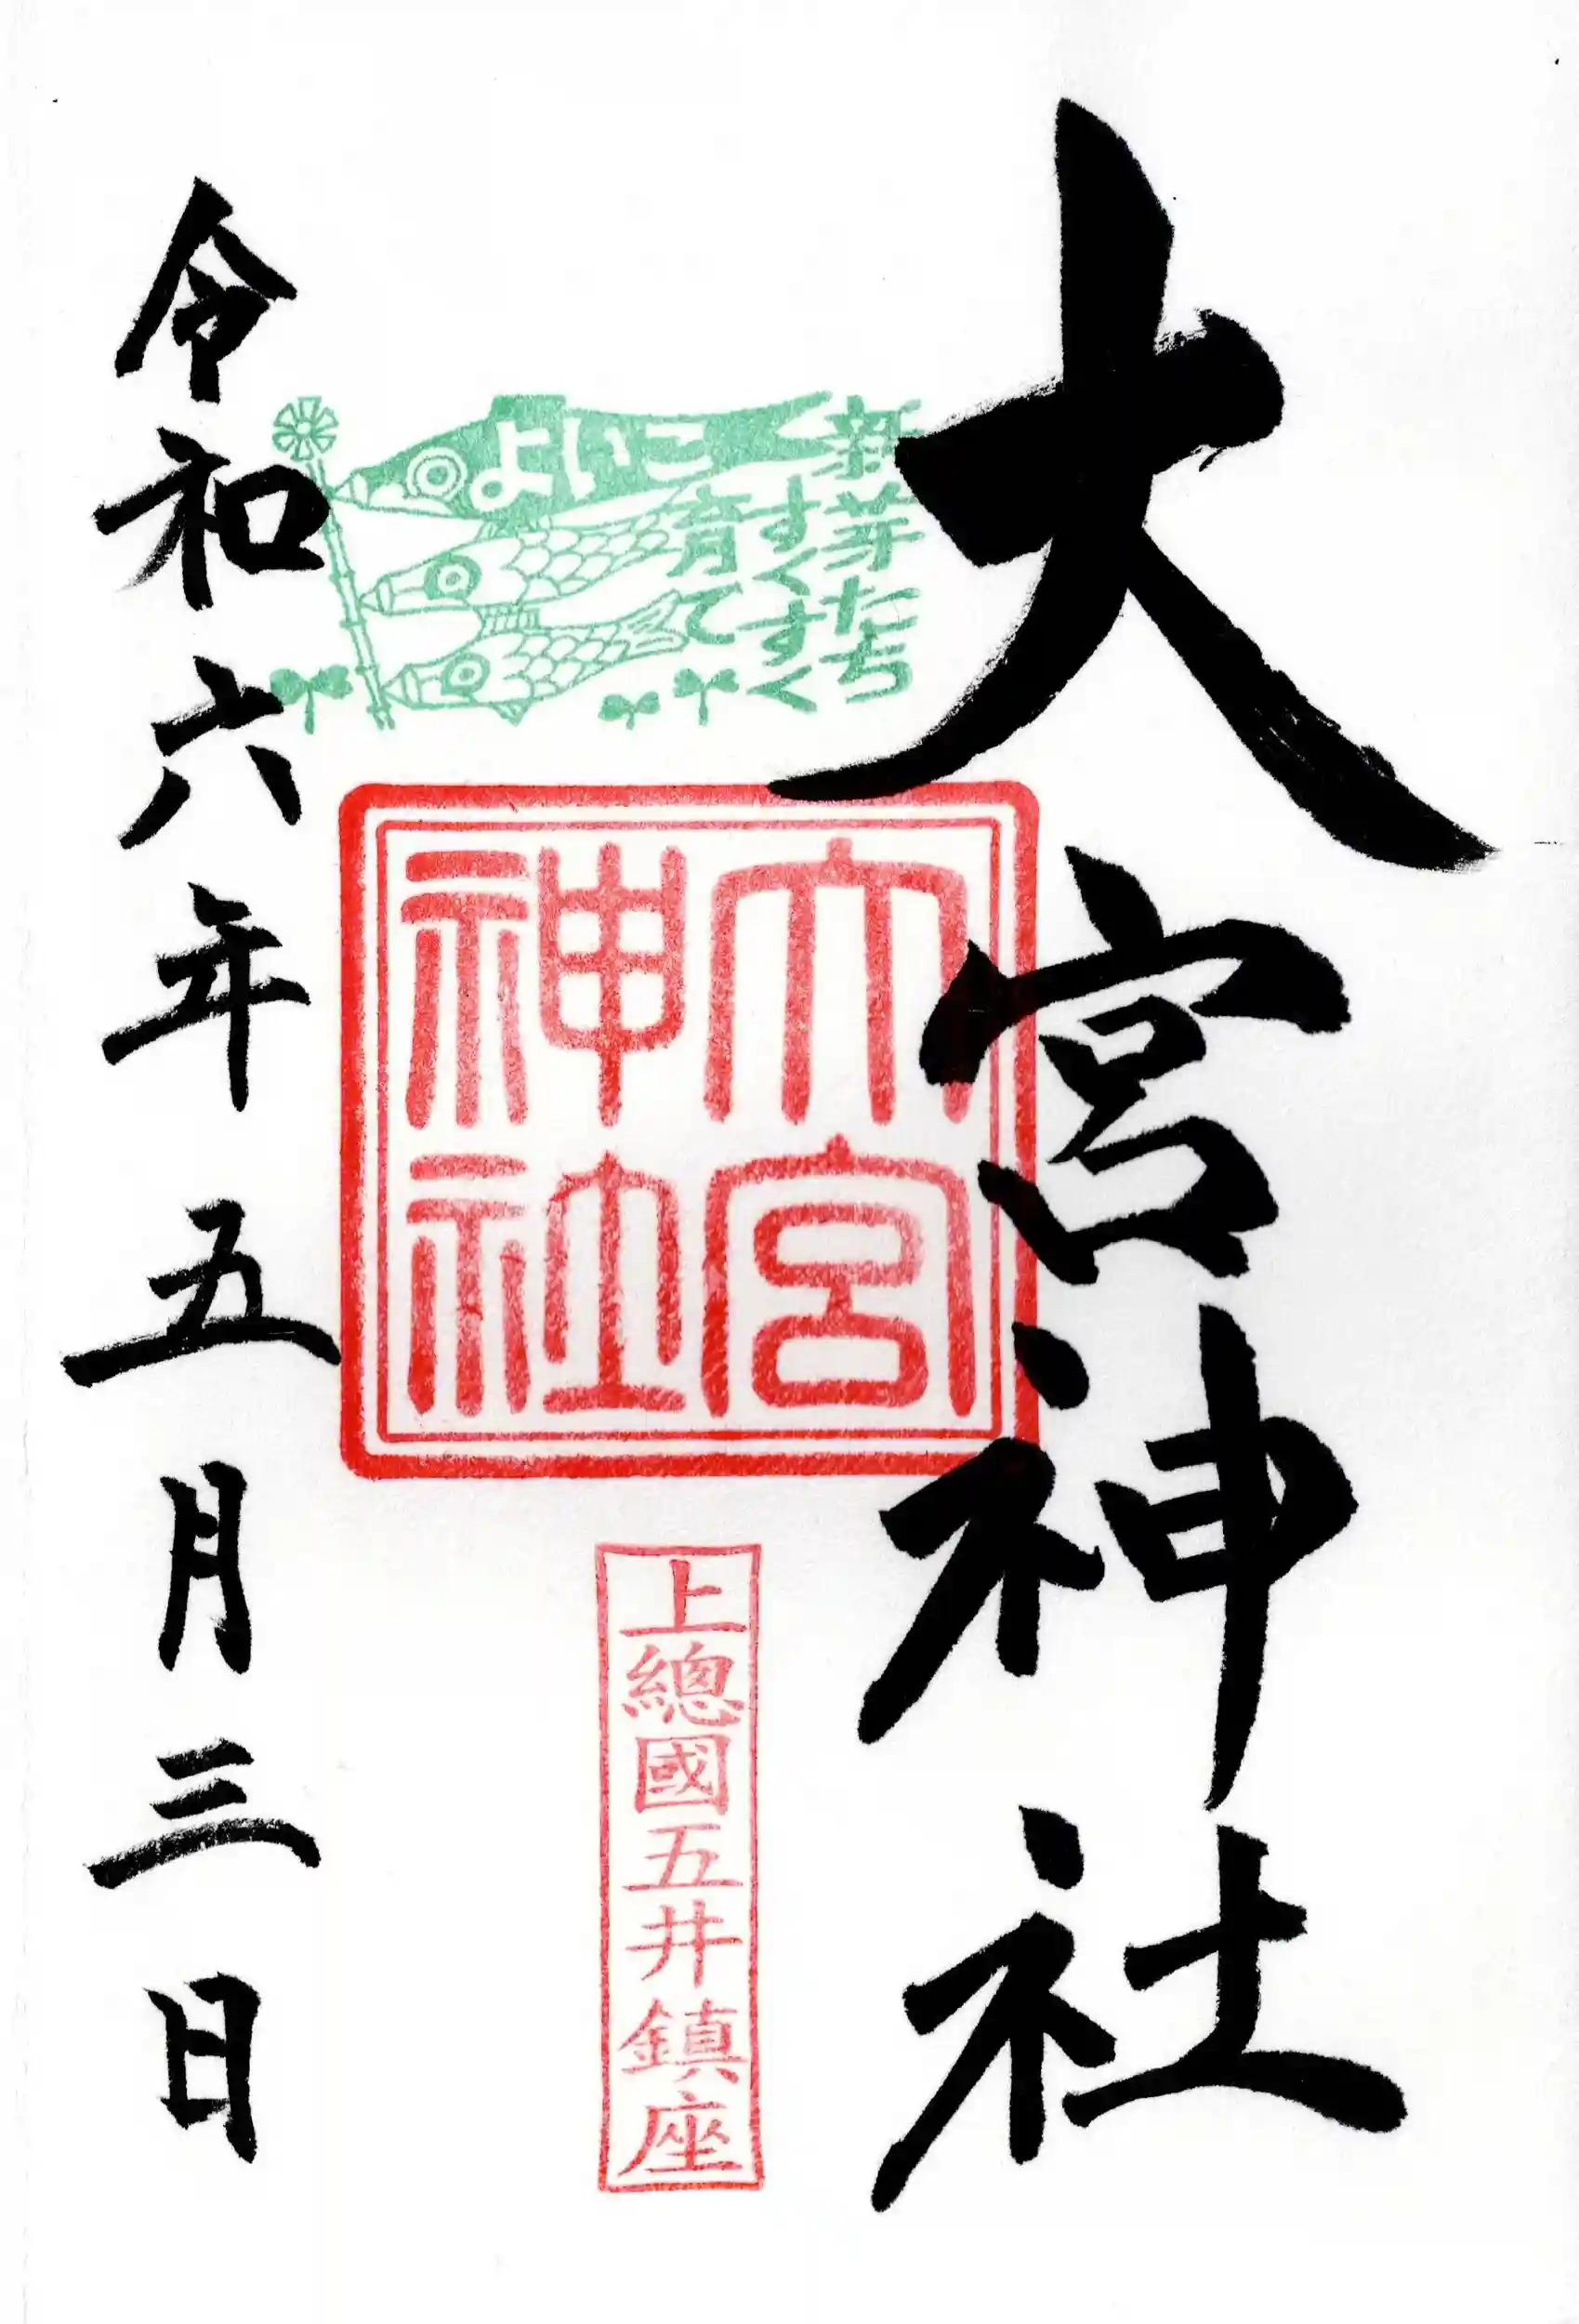 大宮神社
新芽たち
すくすく
育て
よいこ
大宮
神社
上總國五井鎮座
令和六年五月三日